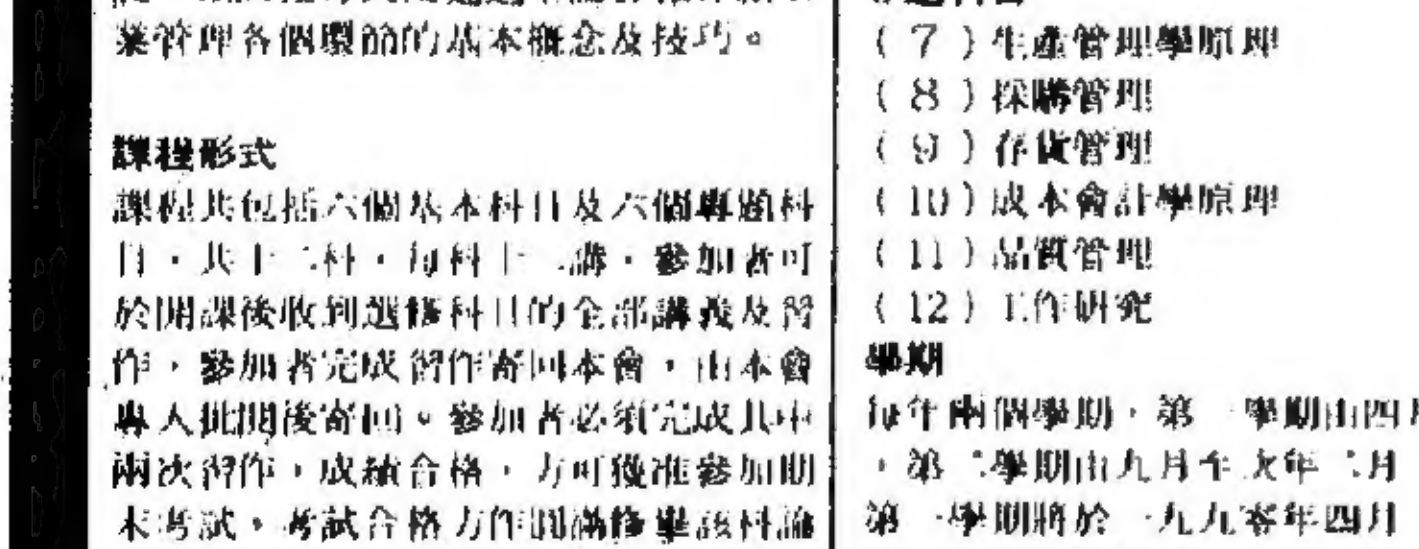 業管理各個環節的基本概念及技巧。
課程形式
課程共包括六個基本科目及六個專題科
目,共十二科,每科十二講,參加者可
於開課後收到選修科目的全部講義及習
作,參加者完成習作寄回本會,由本會
專人批閱後寄回。參加者必須完成其中
兩次習作,成績合格,方可獲准參加期
末考試,考試合格方作圓滿修畢該科論
(7)生產管理學原理
(8)採購管理
(9)存貨管理
(10)成本會計學原理
(11)品質管理
(12)工作研究
學期
每年兩個學期,第一學期由四
,第二學期由九月至次年二月
第一學期將於一九九零年四月